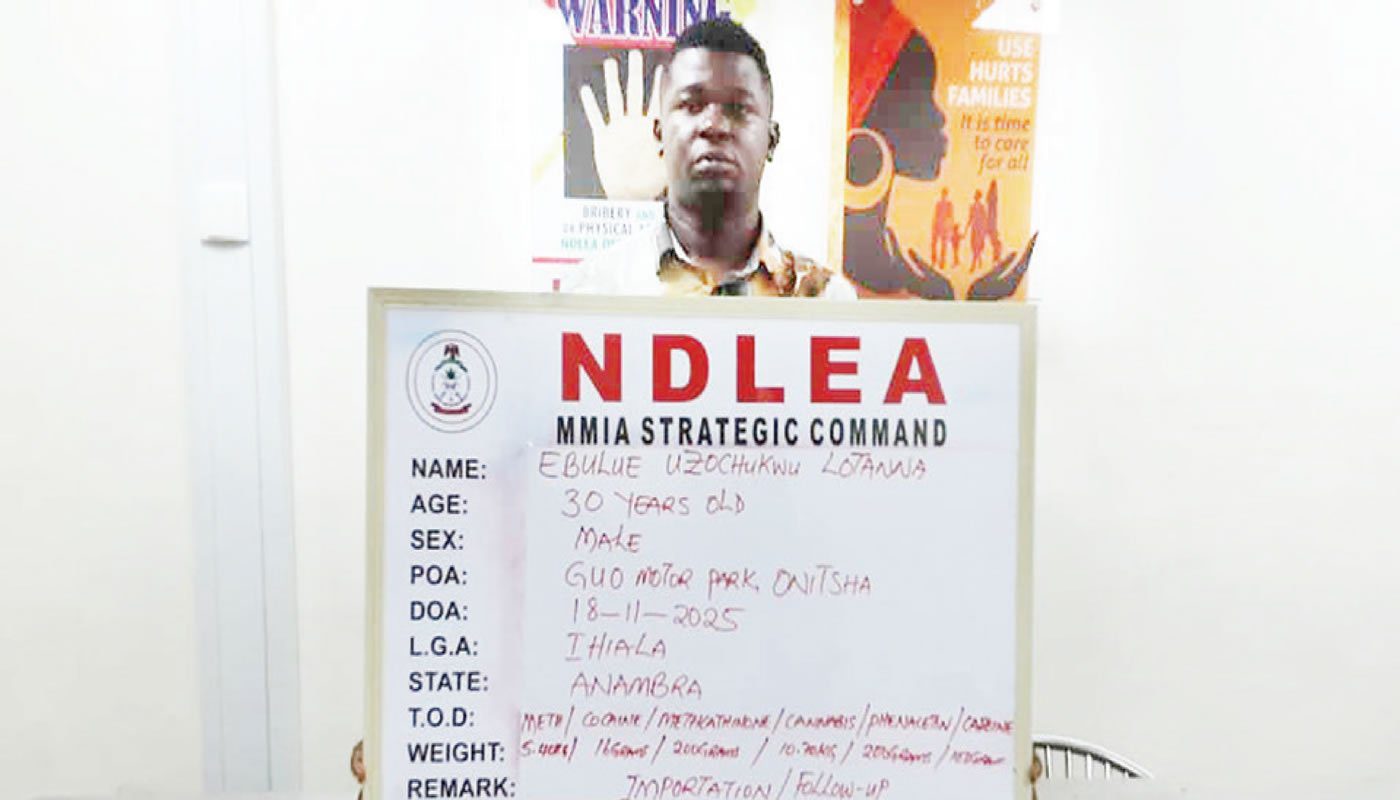 WARNING
BRIBERY AND
NDLEA
USE
HURTS
FAMILIES
It is time
to care
for all
NDLEA
MMIA STRATEGIC COMMAND
NAME: EBULUE UZOCHUKWU LOTANNA
AGE: 30 YEARS OLD
SEX: MALE
POA: GUO MOTOR PARK, ONITSHA
DOA: 18-11-2025
L.G.A: IHIALA
STATE: ANAMBRA
T.O.D: METH/ COCAINE/METHCATHINONE/CANNABIS/PHENACETIN/CAFFEINE
WEIGHT: 16GRAMS / 200GRAMS / 10.70KG / 200GRAMS /
REMARK: IMPORTATION/FOLLOW-UP